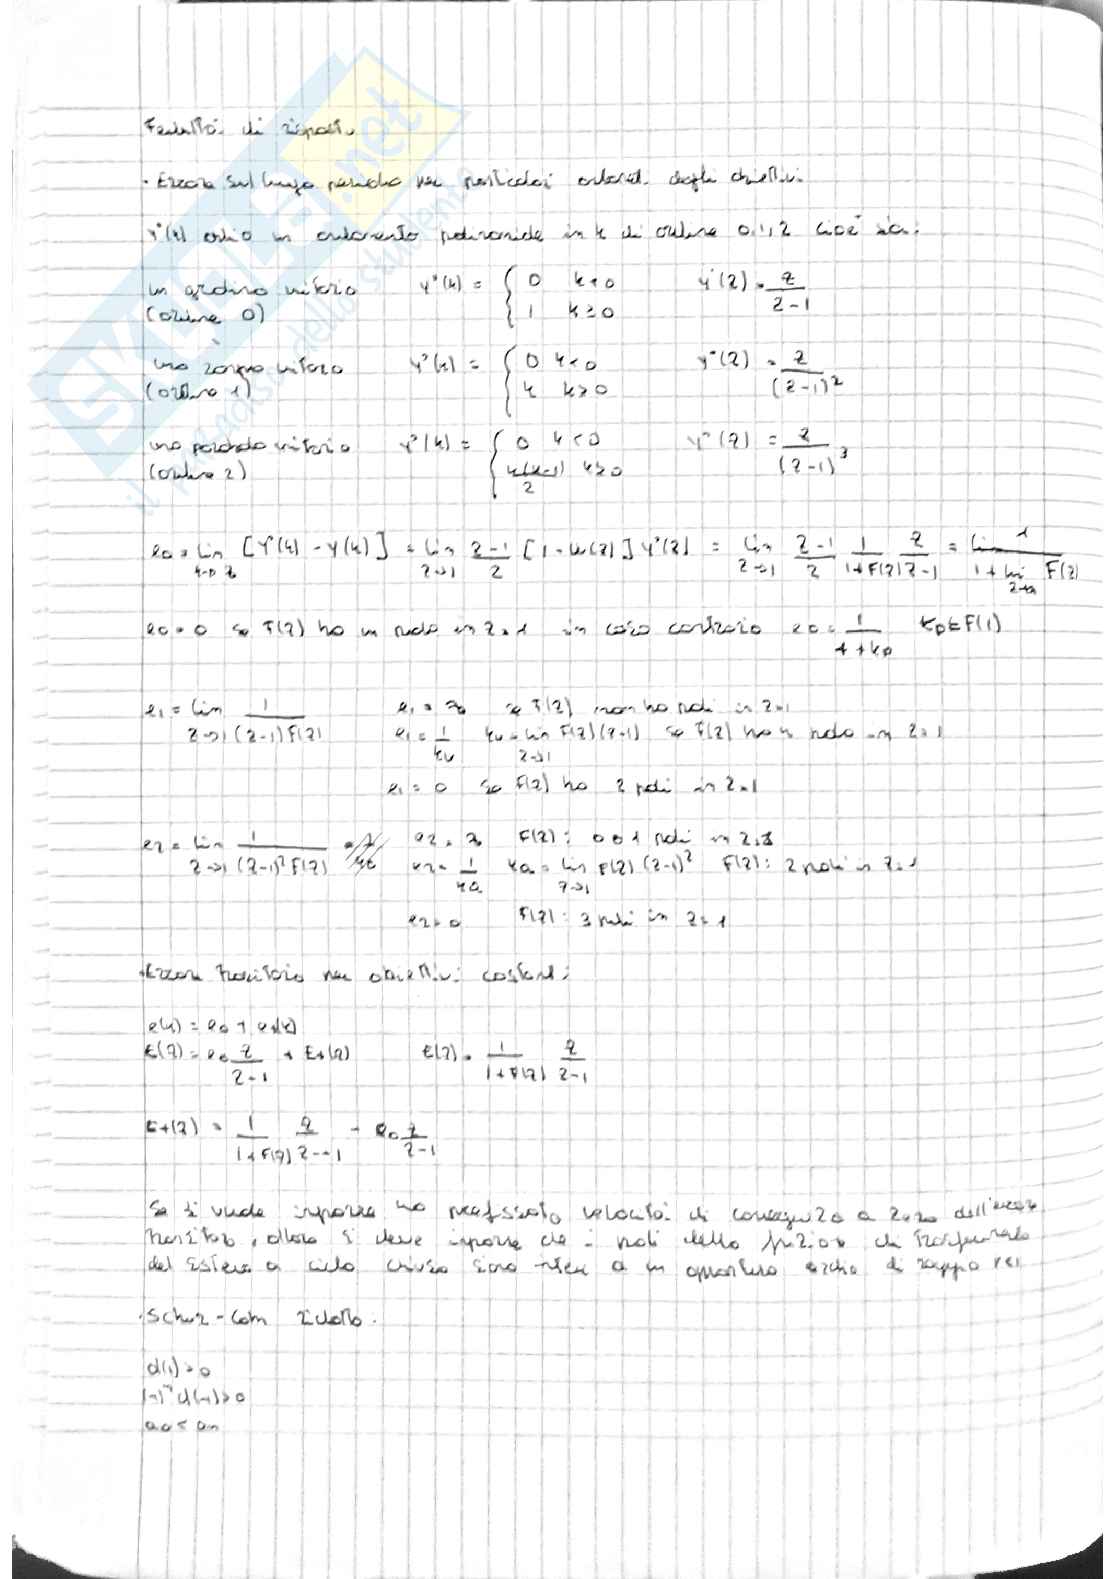 Fedeltà di risposta
· Errore sul lungo periodo per particolari andamenti degli obiettivi.
y°(k) abbia un andamento polinomiale in k di ordine 0,1,2 cioè sia:
un gradino unitario y°(k) = { 0 k<0 y°(z) = z/(z-1)
(ordine 0) 1 k≥0
una rampa unitaria y°(k) = { 0 k<0 y°(z) = z/(z-1)²
(ordine 1) k k≥0
una parabola unitaria y°(k) = { 0 k<0 y°(z) = z/(z-1)³
(ordine 2) k(k-1)/2 k≥0
e0 = lim k→∞ [y°(k) - y(k)] = lim z→1 (z-1)/z [1 - W(z)] y°(z) = lim z→1 (z-1)/z 1/(1+F(z)) z/(z-1) = 1/(1+lim F(z))
e0 = 0 se F(z) ha un polo in z=1 in caso contrario e0 = 1/(1+kp) kp = F(1)
e1 = lim z→1 1/((z-1)F(z)) e1 = ∞ se F(z) non ha poli in z=1
e1 = 1/kv kv = lim z→1 F(z)(z-1) se F(z) ha 1 polo in z=1
e1 = 0 se F(z) ha 2 poli in z=1
e2 = lim z→1 1/((z-1)²F(z)) e2 = ∞ F(z): 0 o 1 poli in z=1
e2 = 1/ka ka = lim z→1 F(z)(z-1)² F(z): 2 poli in z=1
e2=0 F(z): 3 poli in z=1
· Errore transitorio per obiettivi costanti:
e(k) = e0 + et(k)
E(z) = e0 z/(z-1) + Et(z) E(z) = 1/(1+F(z)) z/(z-1)
Et(z) = 1/(1+F(z)) z/(z-1) - e0 z/(z-1)
Se si vuole imporre una prefissata velocità di convergenza a zero dell'errore
transitorio, allora si deve imporre che i poli della funzione di trasferimento
del sistema a ciclo chiuso siano interni a un opportuno cerchio di raggio
· Schur-Cohn ridotto:
d(1)>0
(-1)ⁿd(-1)>0
a0<an
SKUOLA.net
il paradiso dello studente